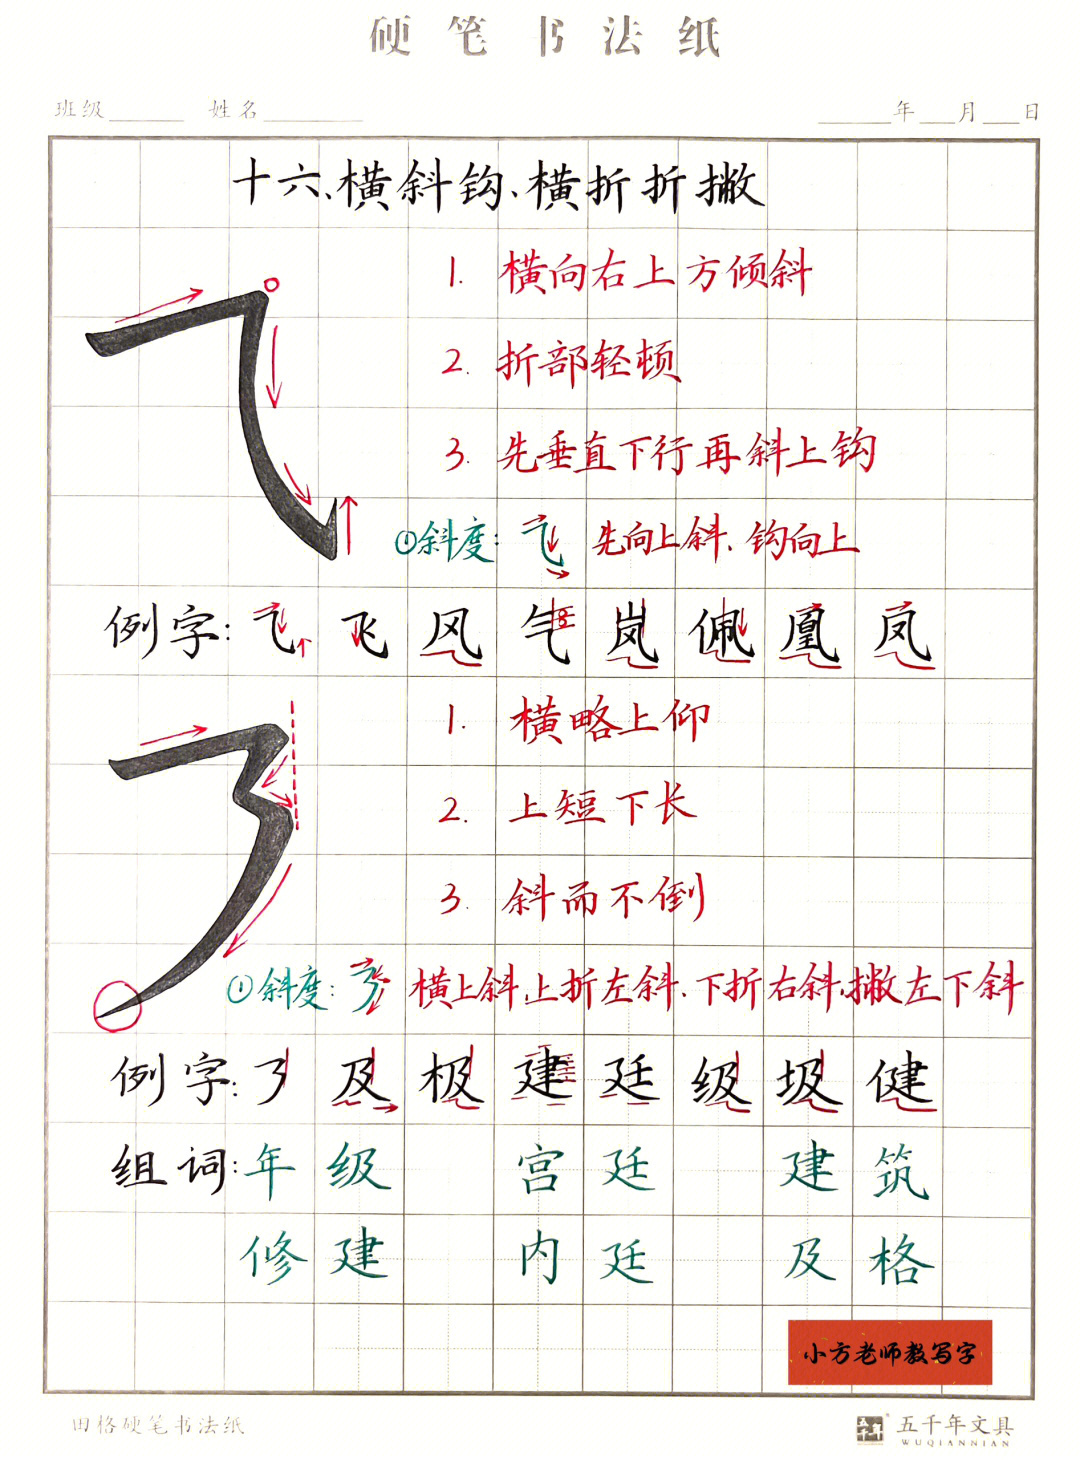 硬笔书法纸
班级 姓名 年 月 日
十六、横斜钩、横折折撇
1. 横向右上方倾斜
2. 折部轻顿
3. 先垂直下行再斜上钩
①斜度: ⺄ 先向上斜、钩向上
例字: ⺄ 飞 风 气 岚 佩 凰 凤
1. 横略上仰
2. 上短下长
3. 斜而不倒
①斜度: ㇋ 横上斜、上折左斜、下折右斜、撇左下斜
例字: ㇋ 及 极 建 廷 级 圾 健
组词: 年级 宫廷 建筑
修建 内廷 及格
小方老师教写字
田格硬笔书法纸
五千年 五千年文具
WUQIANNIAN